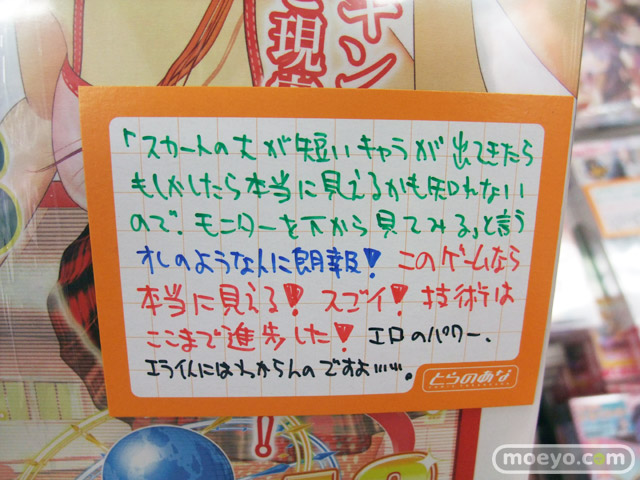 キン
と現實
「スカートの丈が短いキャラが出てきたら
もしかしたら本当に見えるかも知れない
ので、モニターを下から見てみる」と言う
オレのような人に朗報! このゲームなら
本当に見える! スゴイ! 技術は
ここまで進歩した! エロのパワー、
エライ人にはわからんのですよ……。
とらのあな
moeyo.com